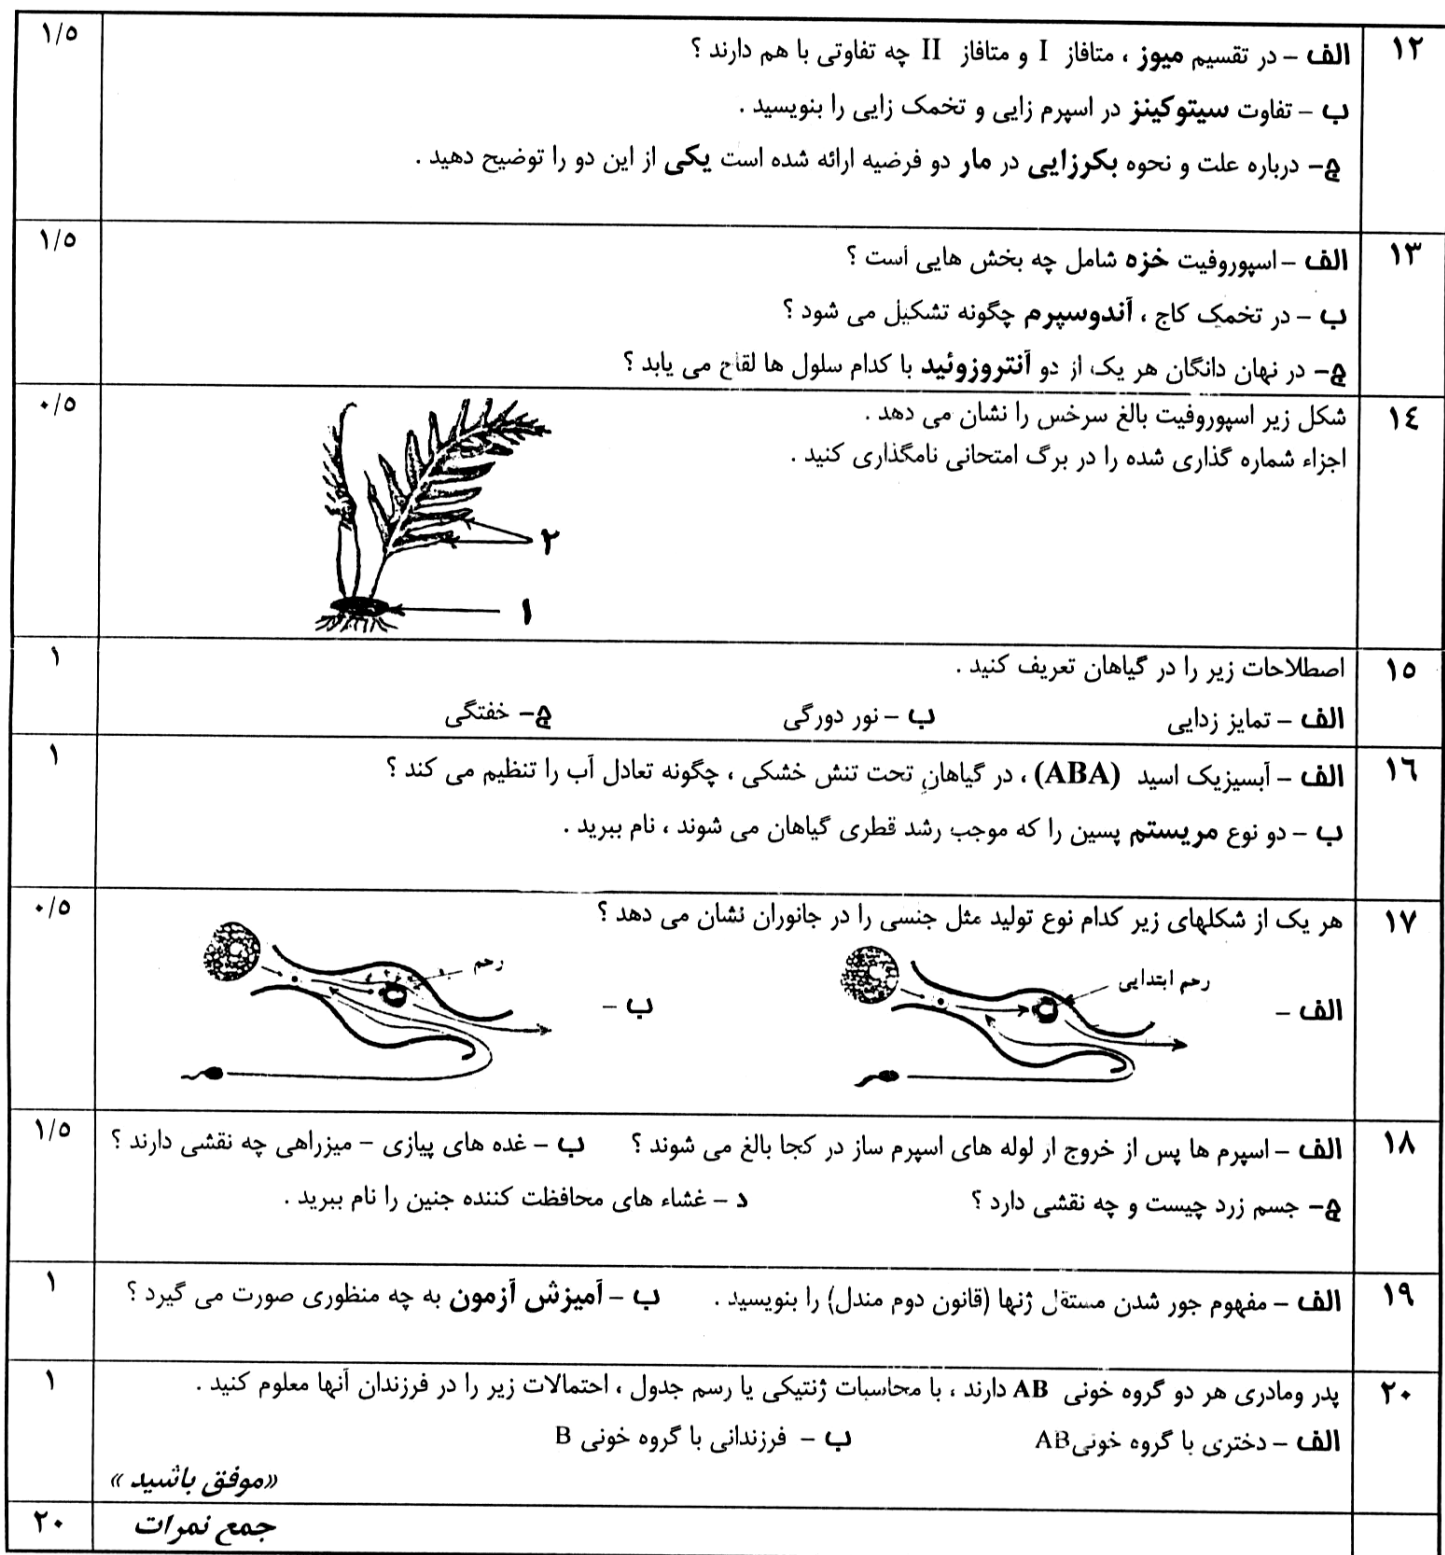 ۱۲ الف – در تقسیم میوز ، متافاز I و متافاز II چه تفاوتی با هم دارند ؟ ۱/۵
ب – تفاوت سیتوکینز در اسپرم زایی و تخمک زایی را بنویسید .
ج– درباره علت و نحوه بکرزایی در مار دو فرضیه ارائه شده است یکی از این دو را توضیح دهید .
۱۳ الف – اسپوروفیت خزه شامل چه بخش هایی است ؟ ۱/۵
ب – در تخمک کاج ، آندوسپرم چگونه تشکیل می شود ؟
ج– در نهان دانگان هر یک از دو آنتروزوئید با کدام سلول ها لقاح می یابد ؟
۱٤ شکل زیر اسپوروفیت بالغ سرخس را نشان می دهد . ۰/۵
اجزاء شماره گذاری شده را در برگ امتحانی نامگذاری کنید .
۲
۱
۱۵ اصطلاحات زیر را در گیاهان تعریف کنید . ۱
الف – تمایز زدایی ب – نور دورگی ج– خفتگی
۱٦ الف – آبسیزیک اسید (ABA) ، در گیاهان تحت تنش خشکی ، چگونه تعادل آب را تنظیم می کند ؟ ۱
ب – دو نوع مریستم پسین را که موجب رشد قطری گیاهان می شوند ، نام ببرید .
۱۷ هر یک از شکلهای زیر کدام نوع تولید مثل جنسی را در جانوران نشان می دهد ؟ ۰/۵
رحم ابتدایی رحم
الف – ب –
۱۸ الف – اسپرم ها پس از خروج ار لوله های اسپرم ساز در کجا بالغ می شوند ؟ ب – غده های پیازی – میزراهی چه نقشی دارند ؟ ۱/۵
ج– جسم زرد چیست و چه نقشی دارد ؟ د – غشاء های محافظت کننده جنین را نام ببرید .
۱۹ الف – مفهوم جور شدن مستقل ژنها (قانون دوم مندل) را بنویسید . ب – آمیزش آزمون به چه منظوری صورت می گیرد ؟ ۱
۲۰ پدر ومادری هر دو گروه خونی AB دارند ، با محاسبات ژنتیکی یا رسم جدول ، احتمالات زیر را در فرزندان آنها معلوم کنید . ۱
الف – دختری با گروه خونیAB ب – فرزندانی با گروه خونی B
«موفق باشید »
جمع نمرات ۲۰